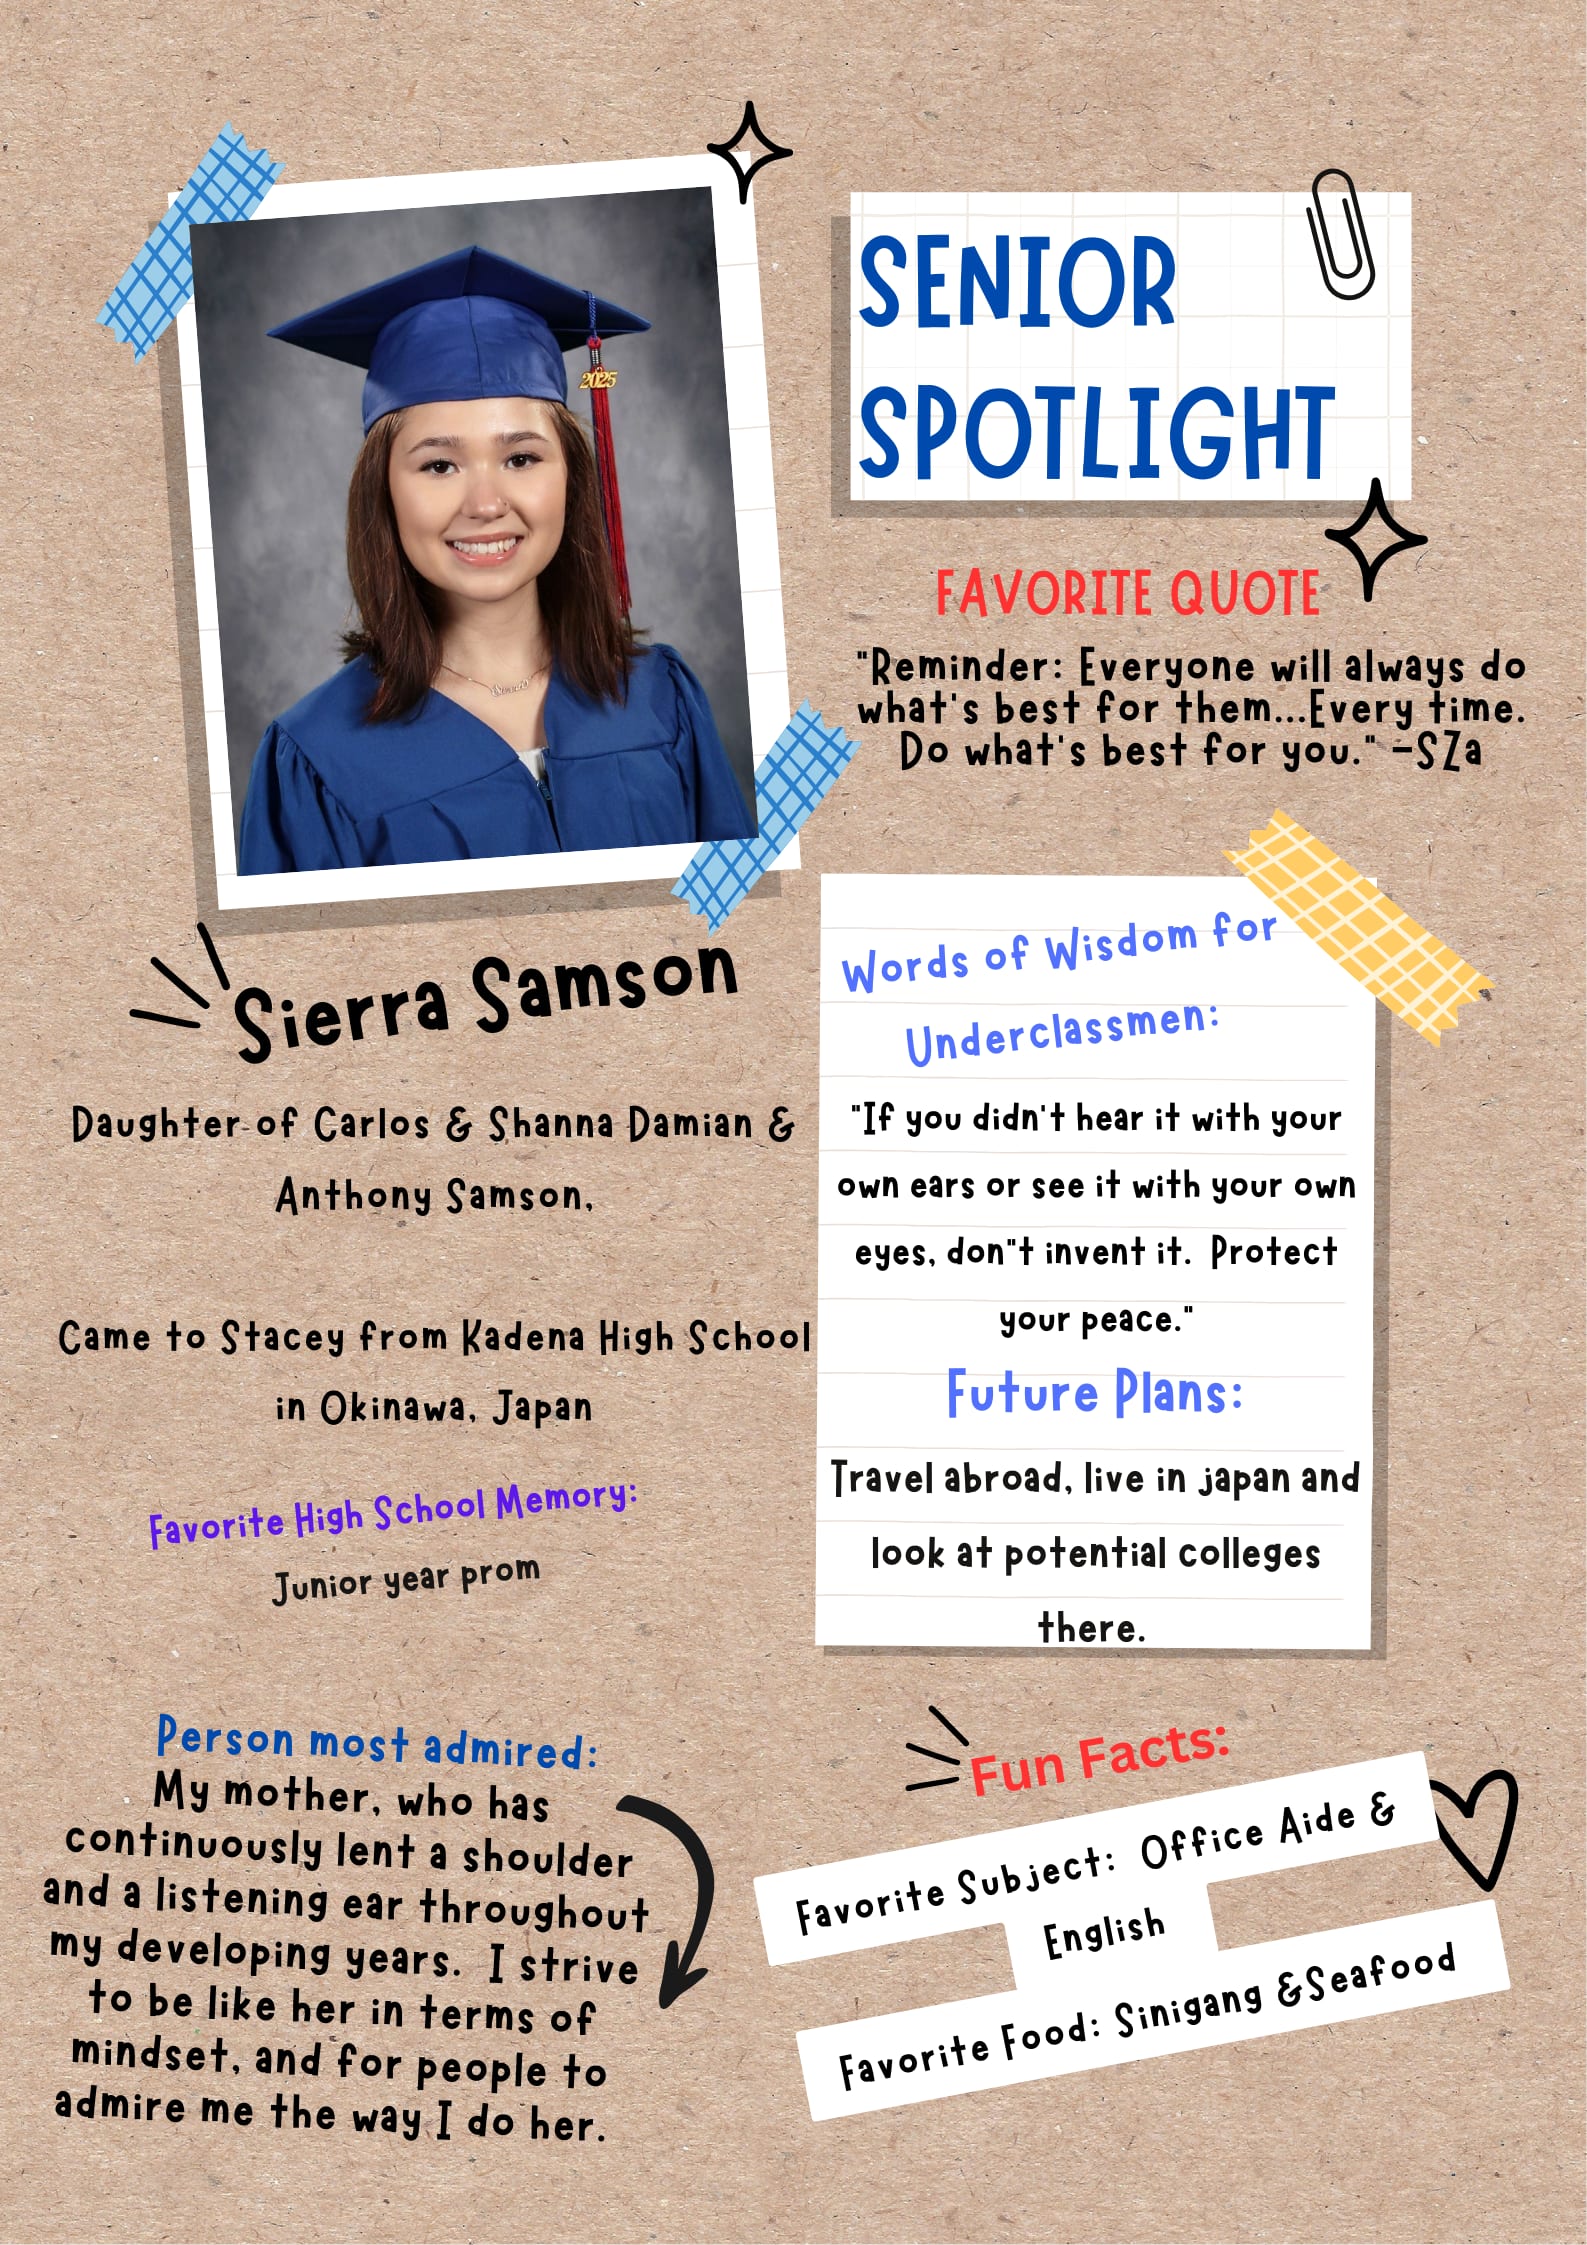 SENIOR
SPOTLIGHT
2025
FAVORITE QUOTE
"Reminder: Everyone will always do
what's best for them...Every time.
Do what's best for you." -SZa
Sierra Samson
Daughter of Carlos & Shanna Damian &
Anthony Samson,
Came to Stacey from Kadena High School
in Okinawa, Japan
Favorite High School Memory:
Junior year prom
Person most admired:
My mother, who has
continuously lent a shoulder
and a listening ear throughout
my developing years. I strive
to be like her in terms of
mindset, and for people to
admire me the way I do her.
Words of Wisdom for
Underclassmen:
"If you didn't hear it with your
own ears or see it with your own
eyes, don"t invent it. Protect
your peace."
Future Plans:
Travel abroad, live in japan and
look at potential colleges
there.
Fun Facts:
Favorite Subject: Office Aide &
English
Favorite Food: Sinigang &Seafood